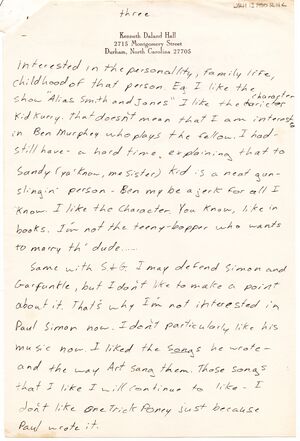 three
Kenneth Daland Hall
2715 Montgomery Street
Durham, North Carolina 27705
Interested in the personality, family life,
childhood of that person. Eg I like the
show "Alias Smith and Jones" I like the character
Kid Kurry. that doesn't mean that I am interests
in Ben Murphy who plays the fellow. I had-
still have - a hard time explaining that to
Sandy (ya' know, me sister) Kid is a neat gun-
slingin' person - Ben my be a jerk for all I
know. I like the character. You know, like in
books. I'm not the teeny-bopper who wants
to marry th' dude......
Same with S+G. I may defend Simon and
Garfunkle, but I don't like to make a point
about it. That's why I'm not interested in
Paul Simon now. I don't particularly like his
music now. I liked the songs he wrote -
and the way Art sang them. Those songs
that I like I will continue to like - I
don't like one Trick Poney just because
Paul wrote it.